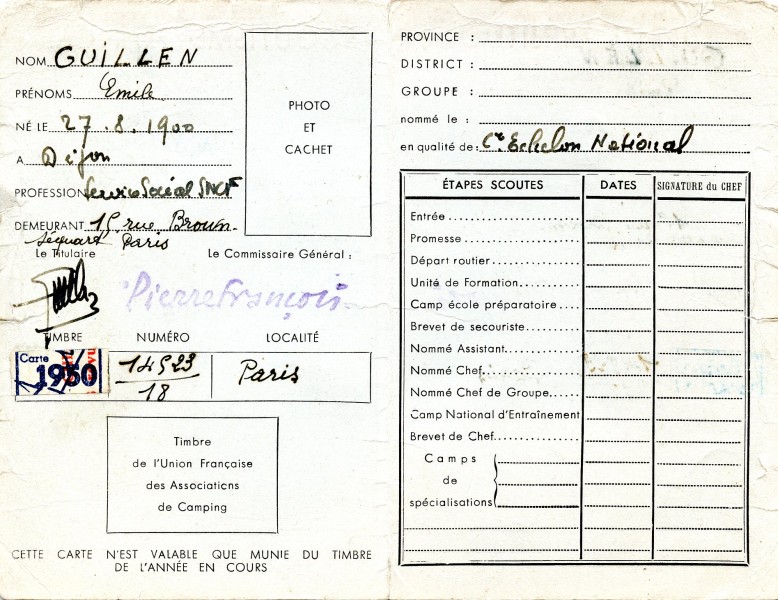 NOM GUILLEN
PRÉNOMS Emile
NÉ LE 27.8.1900
A Dijon
PROFESSION Service Social SNCF
DEMEURANT 15 rue Brown-
Séquart Paris
Le Titulaire
Le Commissaire Général :
Pierre François
PHOTO
ET
CACHET
TIMBRE NUMÉRO LOCALITÉ
Carte
1950
14523
18
Paris
Timbre
de l'Union Française
des Associations
de Camping
CETTE CARTE N'EST VALABLE QUE MUNIE DU TIMBRE
DE L'ANNÉE EN COURS
PROVINCE :
DISTRICT :
GROUPE :
nommé le :
en qualité de : Cre Echelon National
ÉTAPES SCOUTES DATES SIGNATURE du CHEF
Entrée
Promesse
Départ routier
Unité de Formation
Camp école préparatoire
Brevet de secouriste
Nommé Assistant
Nommé Chef
Nommé Chef de Groupe
Camp National d'Entraînement
Brevet de Chef
Camps
de
spécialisations